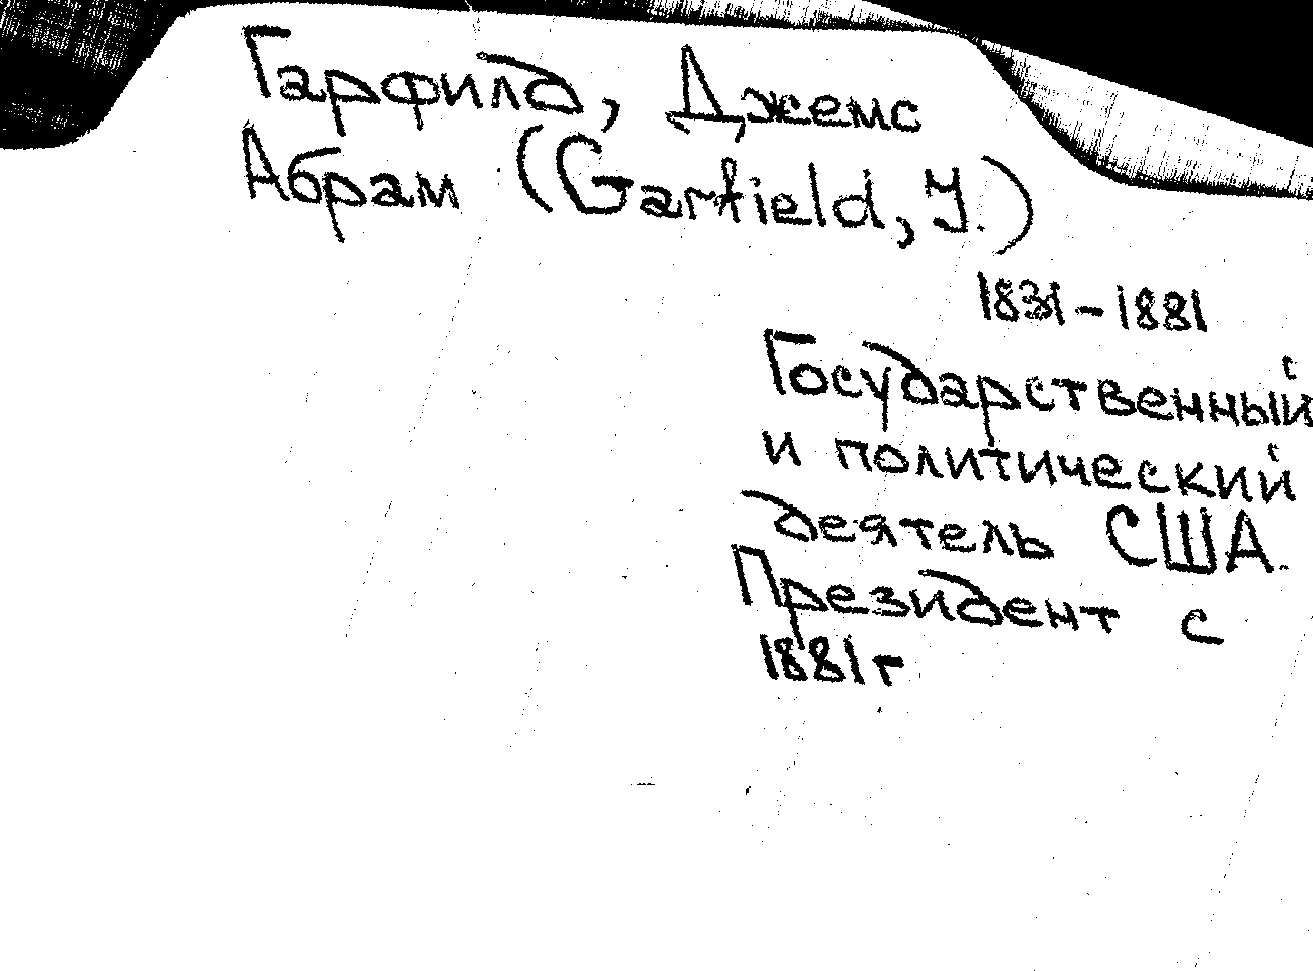 Гарфилд, Джемс
Абрам (Garfield, J.)
1831-1881
Государственный
и политический
деятель США.
Президент с
1881г